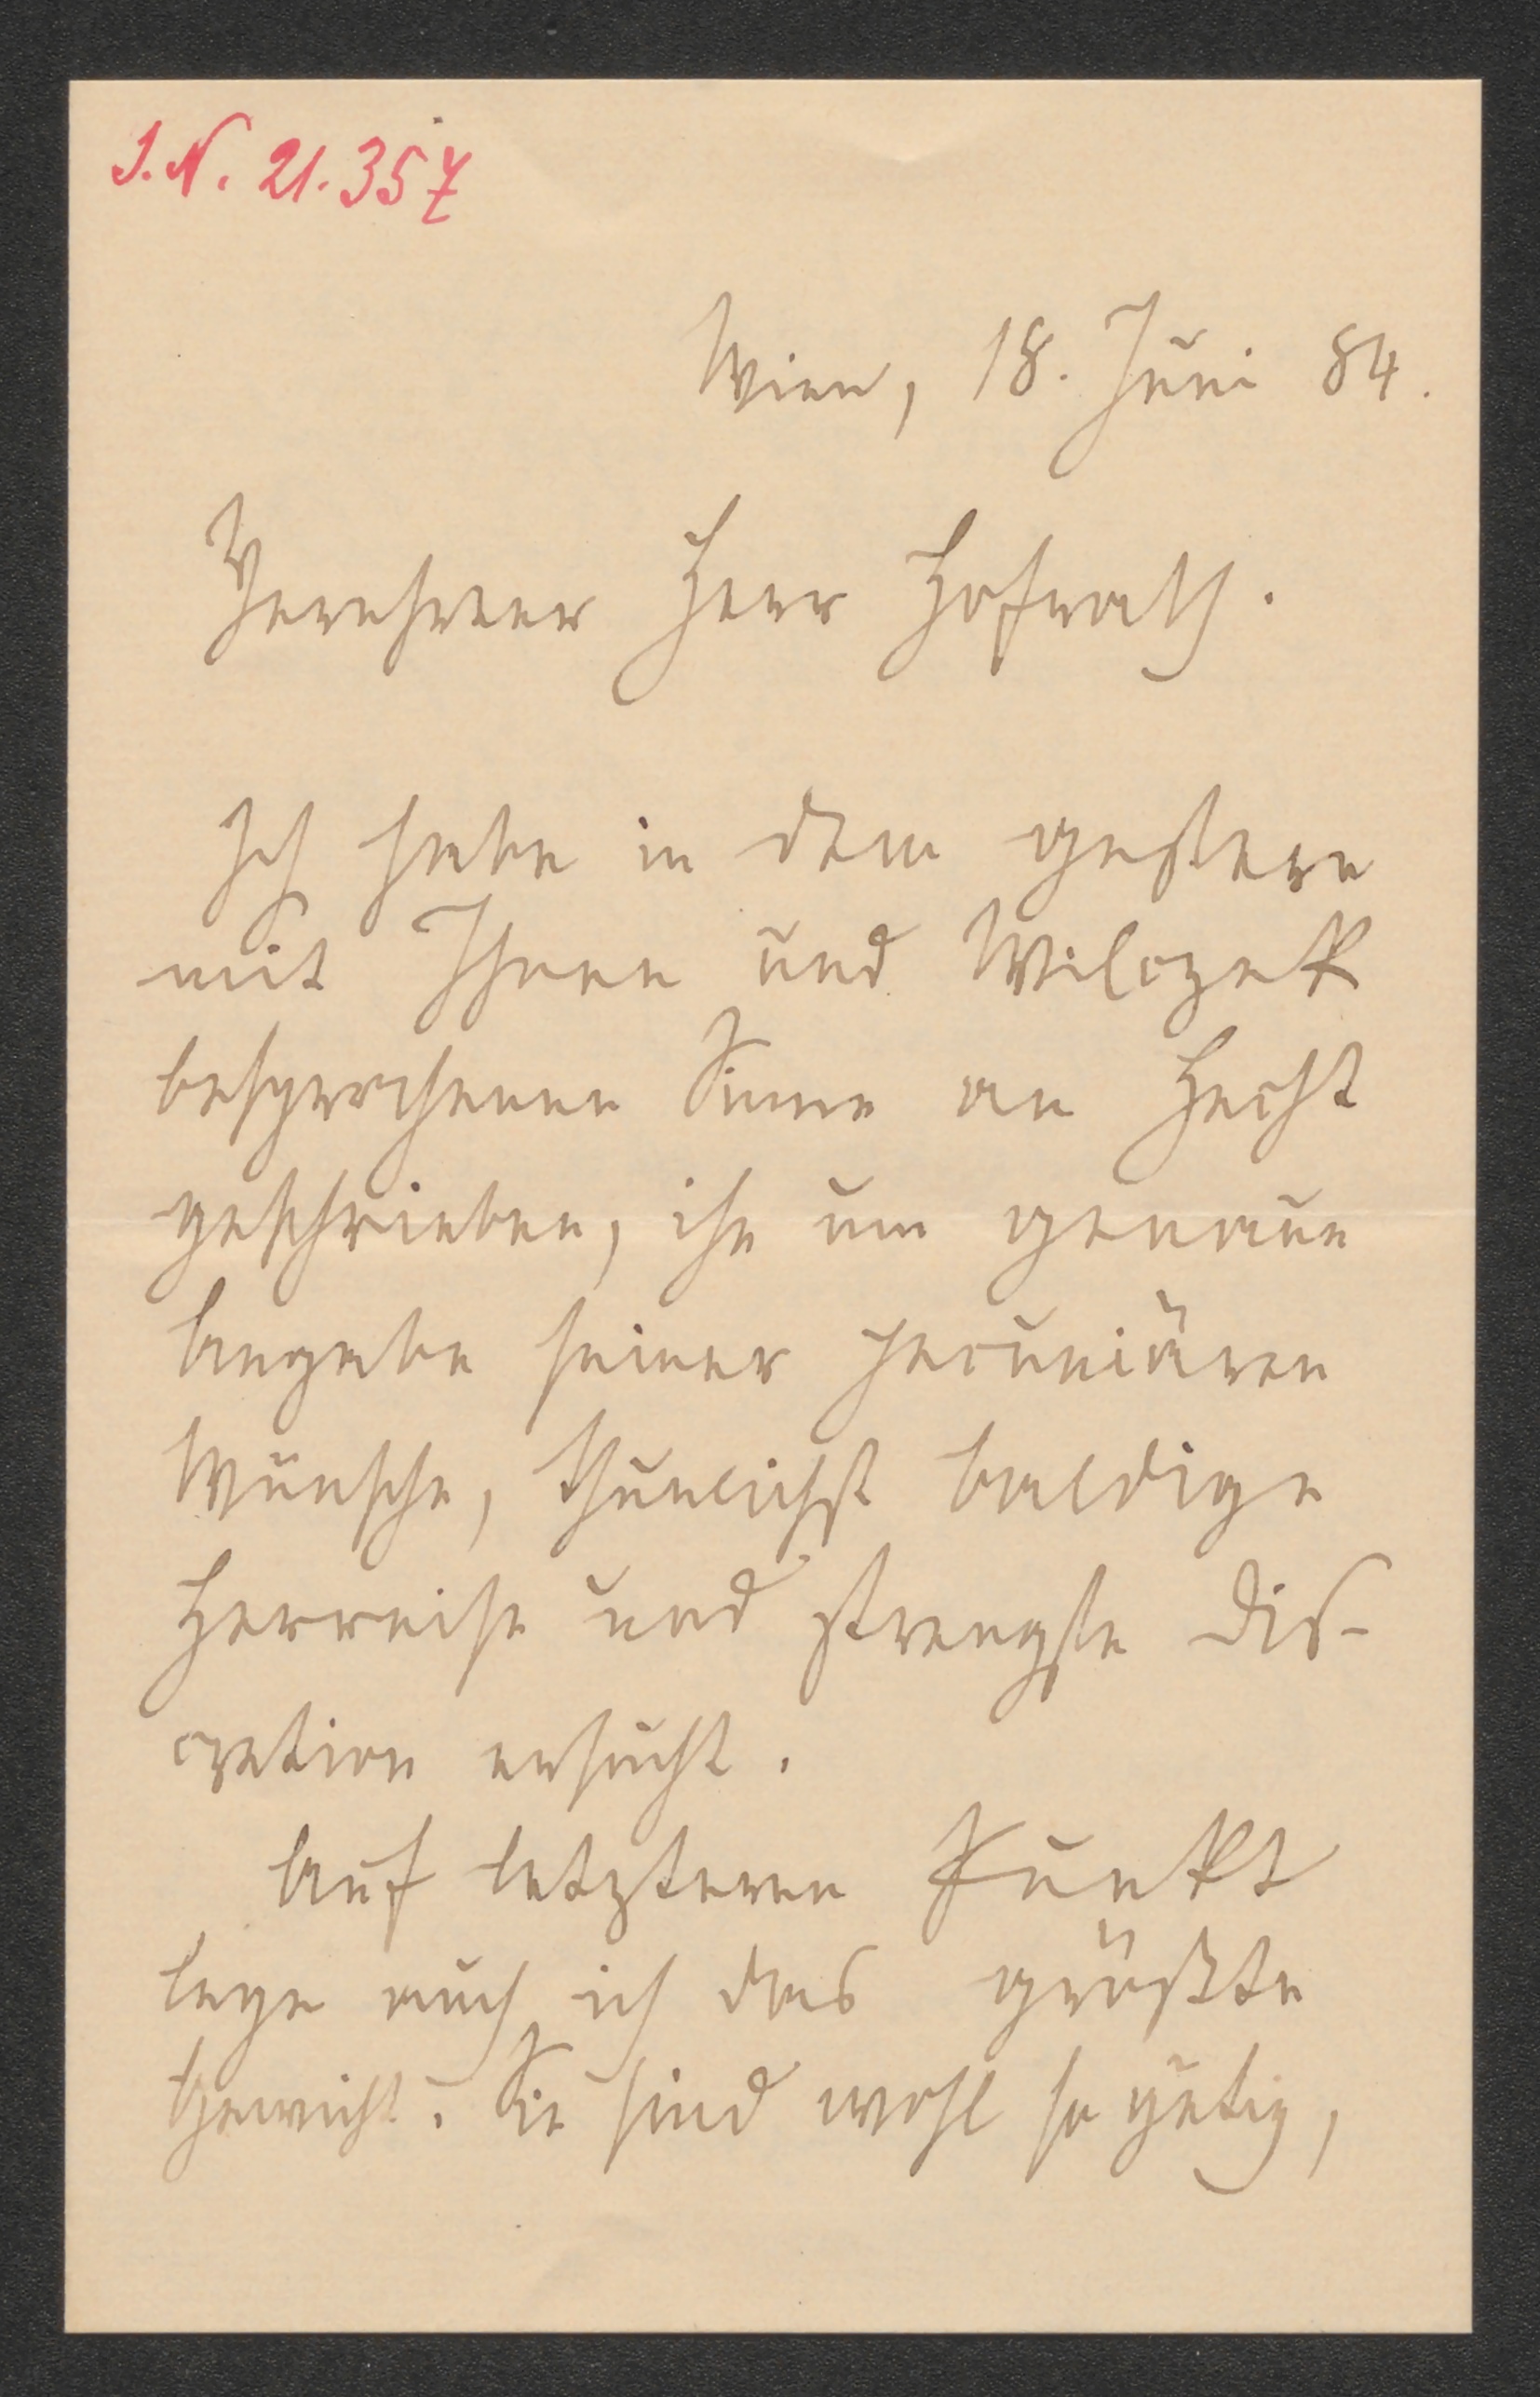 I.N. 21.357
Wien, 18. Juni 84.
Verehrter Herr Hofrath.
Ich habe in dem gestern
mit Ihnen und Wilczek
besprochenen Sinne an Hecht
geschrieben, ihn um genaue
Angabe seiner pecuniären
Wünsche, thunlichst baldige
Herreise und strengste Dis-
cretion ersucht.
Auf letzteren Punkt
lege auch ich das größte
Gewicht. Sie sind wohl so gütig,